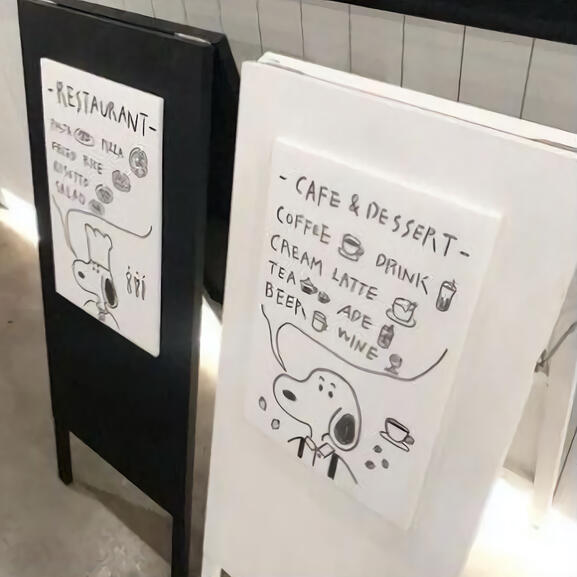 -RESTAURANT-
PASTA PIZZA
FRIED RICE
RISOTTO
SALAD
- CAFE & DESSERT -
COFFEE DRINK
CREAM LATTE
TEA ADE
BEER WINE